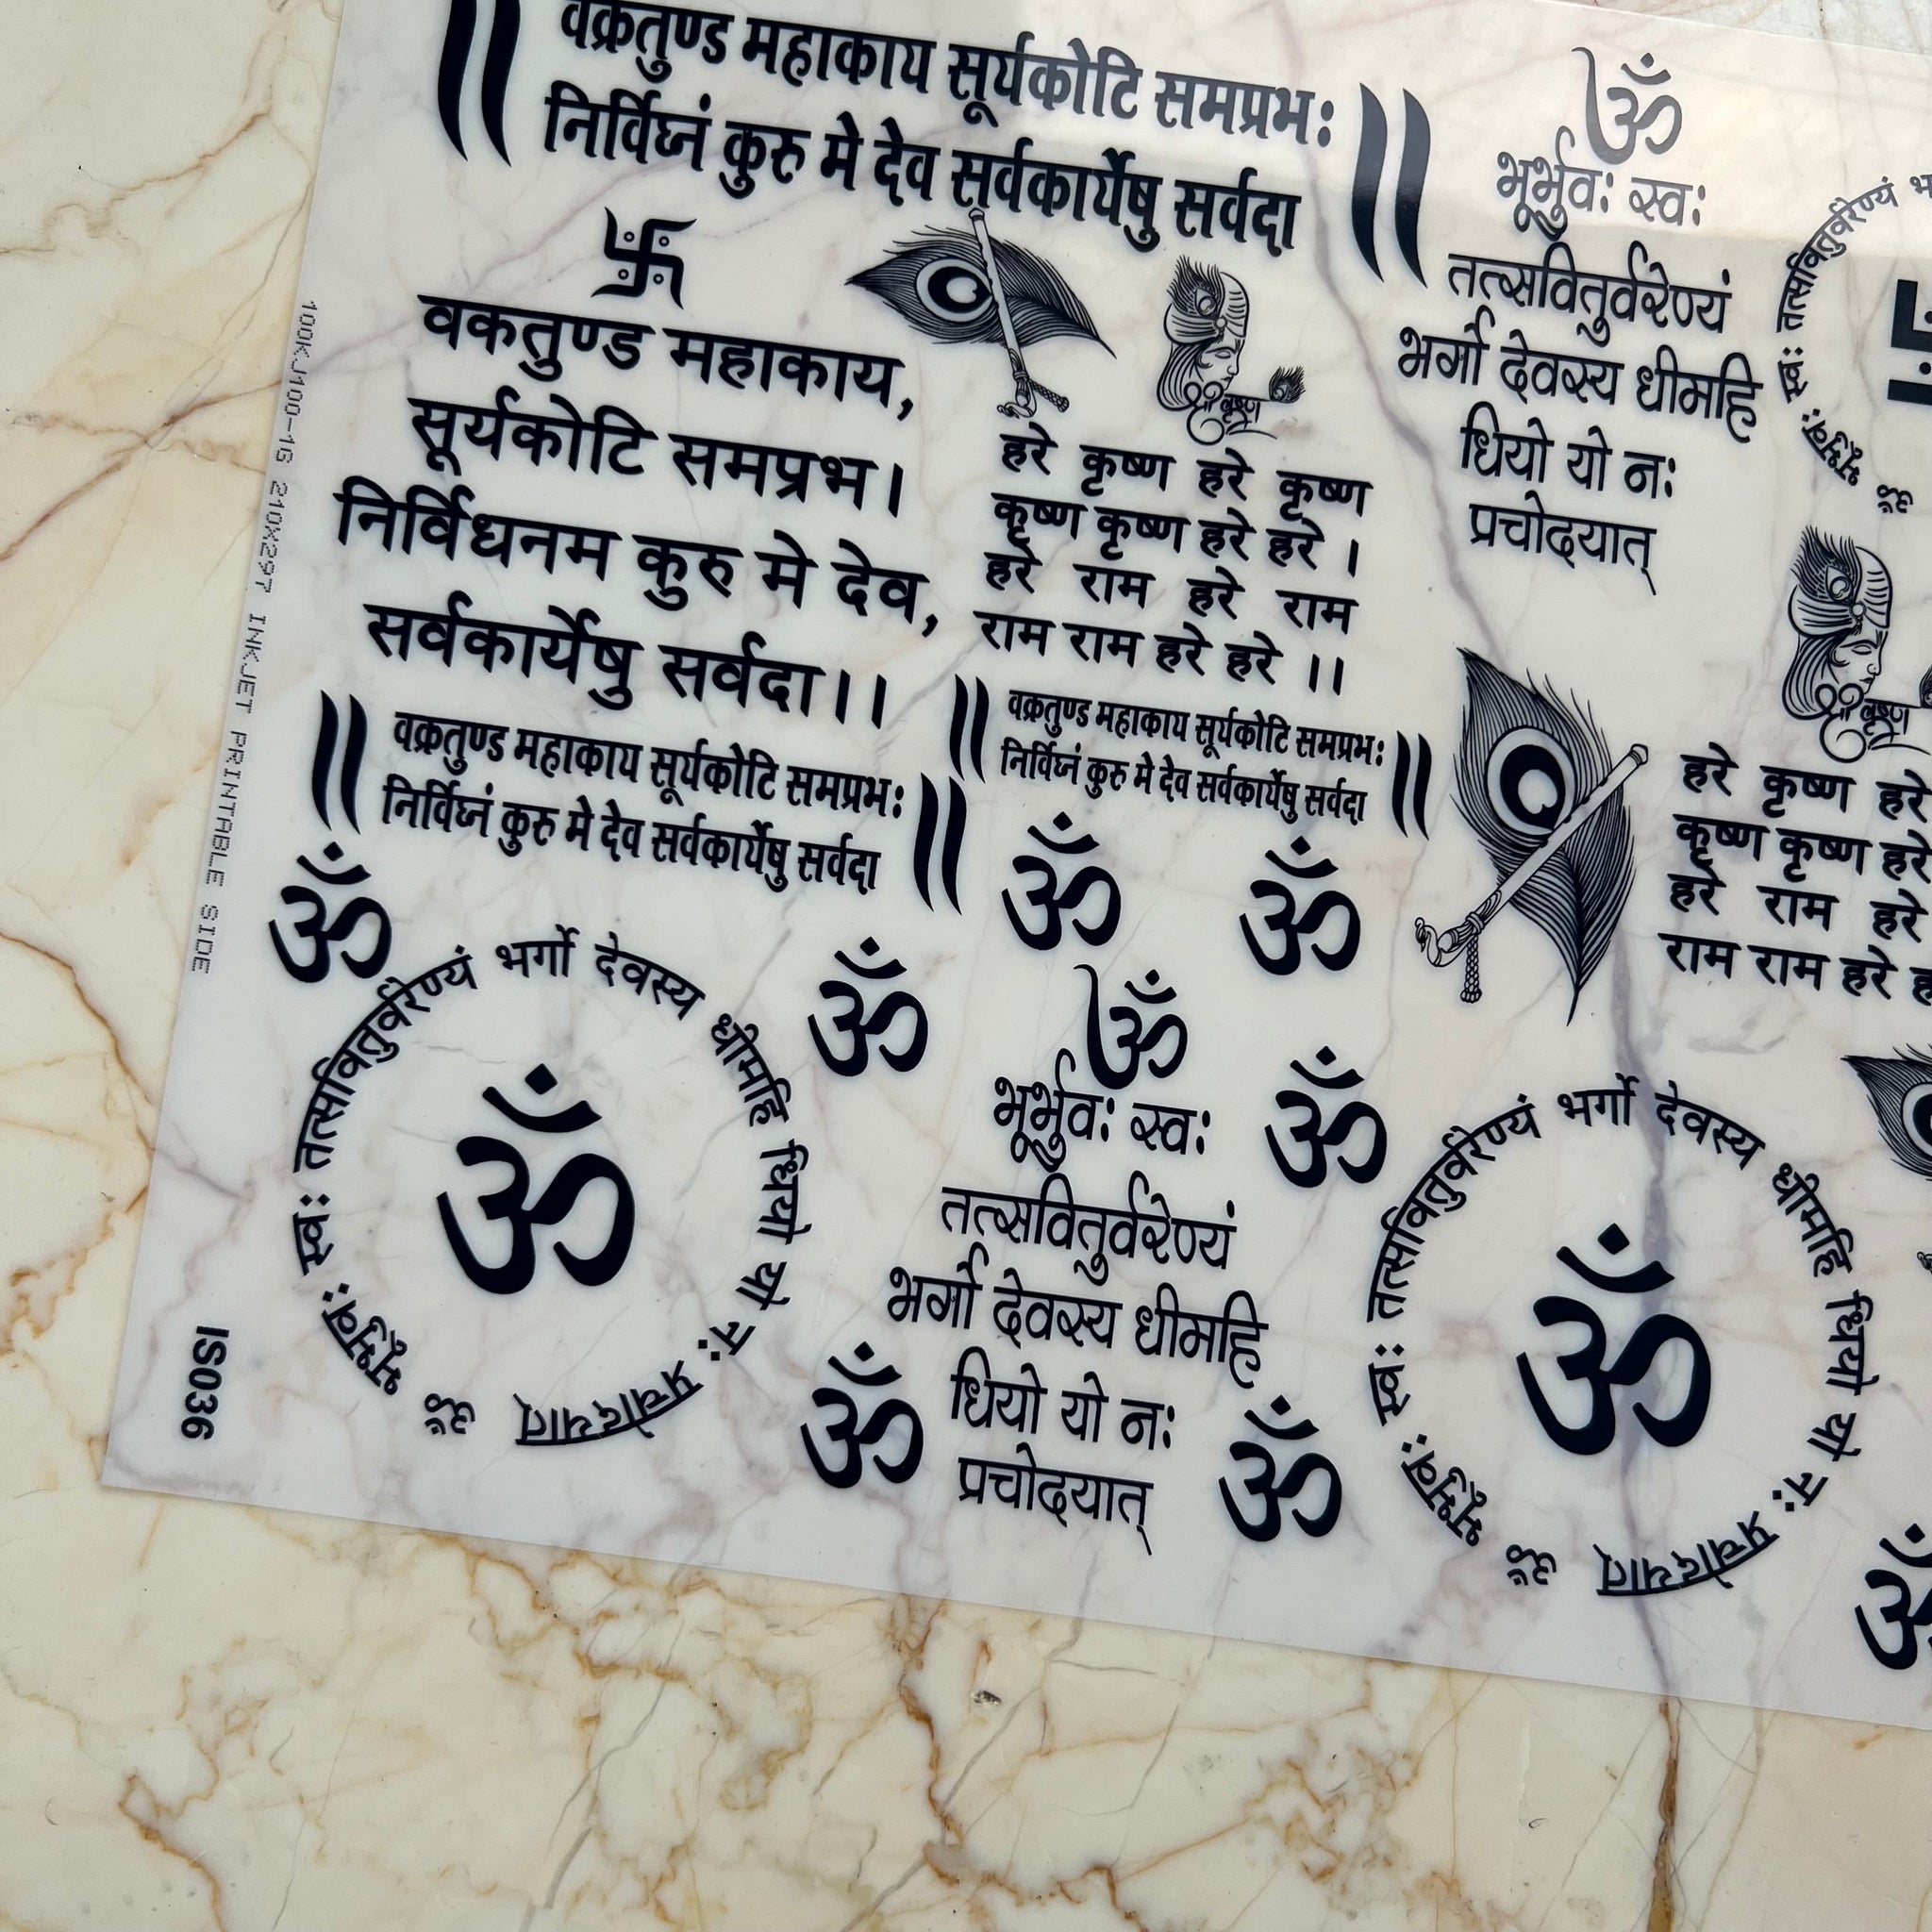 वक्रतुण्ड महाकाय सूर्यकोटि समप्रभः
निर्विघ्नं कुरु मे देव सर्वकार्येषु सर्वदा
वकतुण्ड महाकाय,
सूर्यकोटि समप्रभ।
निर्विधनम कुरु मे देव,
सर्वकार्येषु सर्वदा।।
श्री कृष्ण
हरे कृष्ण हरे कृष्ण
कृष्ण कृष्ण हरे हरे ।
हरे राम हरे राम
राम राम हरे हरे ।।
ॐ
भूर्भुवः स्वः
तत्सवितुर्वरेण्यं
भर्गो देवस्य धीमहि
धियो यो नः
प्रचोदयात्
ॐ भूर्भुवः स्वः तत्सवितुर्वरेण्यं
वक्रतुण्ड महाकाय सूर्यकोटि समप्रभः
निर्विघ्नं कुरु मे देव सर्वकार्येषु सर्वदा
वक्रतुण्ड महाकाय सूर्यकोटि समप्रभः
निर्विघ्नं कुरु मे देव सर्वकार्येषु सर्वदा
श्री कृष्ण
हरे कृष्ण हरे
कृष्ण कृष्ण हरे
हरे राम हरे
राम राम हरे
ॐ
ॐ
ॐ
ॐ
ॐ
ॐ भूर्भुवः स्वः तत्सवितुर्वरेण्यं भर्गो देवस्य धीमहि धियो यो नः प्रचोदयात्
ॐ
ॐ
भूर्भुवः स्वः
तत्सवितुर्वरेण्यं
भर्गो देवस्य धीमहि
धियो यो नः
प्रचोदयात्
ॐ
ॐ
ॐ भूर्भुवः स्वः तत्सवितुर्वरेण्यं भर्गो देवस्य धीमहि धियो यो नः प्रचोदयात्
ॐ
ॐ
100KJ100-1G 210X297 INKJET PRINTABLE SIDE
IS036